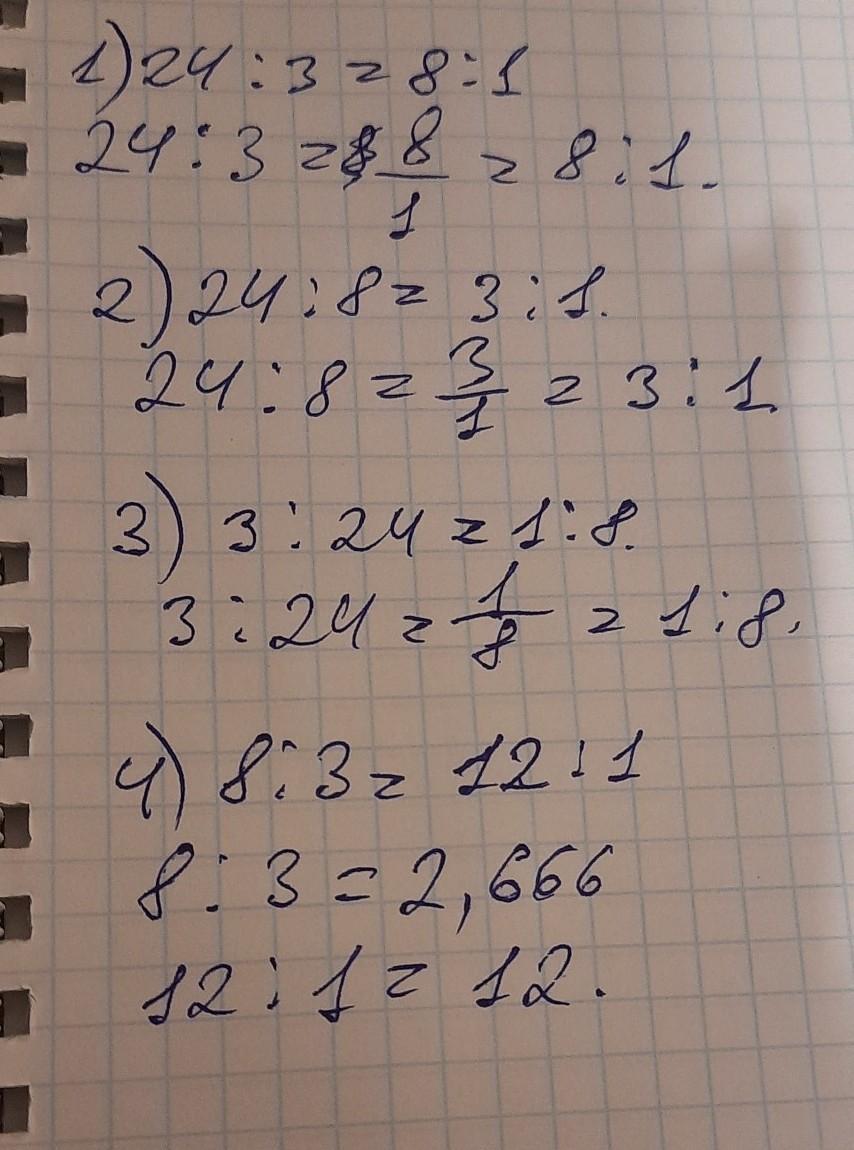 1) 24 : 3 = 8 : 1
24 : 3 = 8/1 = 8 : 1.
2) 24 : 8 = 3 : 1.
24 : 8 = 3/1 = 3 : 1
3) 3 : 24 = 1 : 8.
3 : 24 = 1/8 = 1 : 8.
4) 8 : 3 = 12 : 1
8 : 3 = 2,666
12 : 1 = 12.